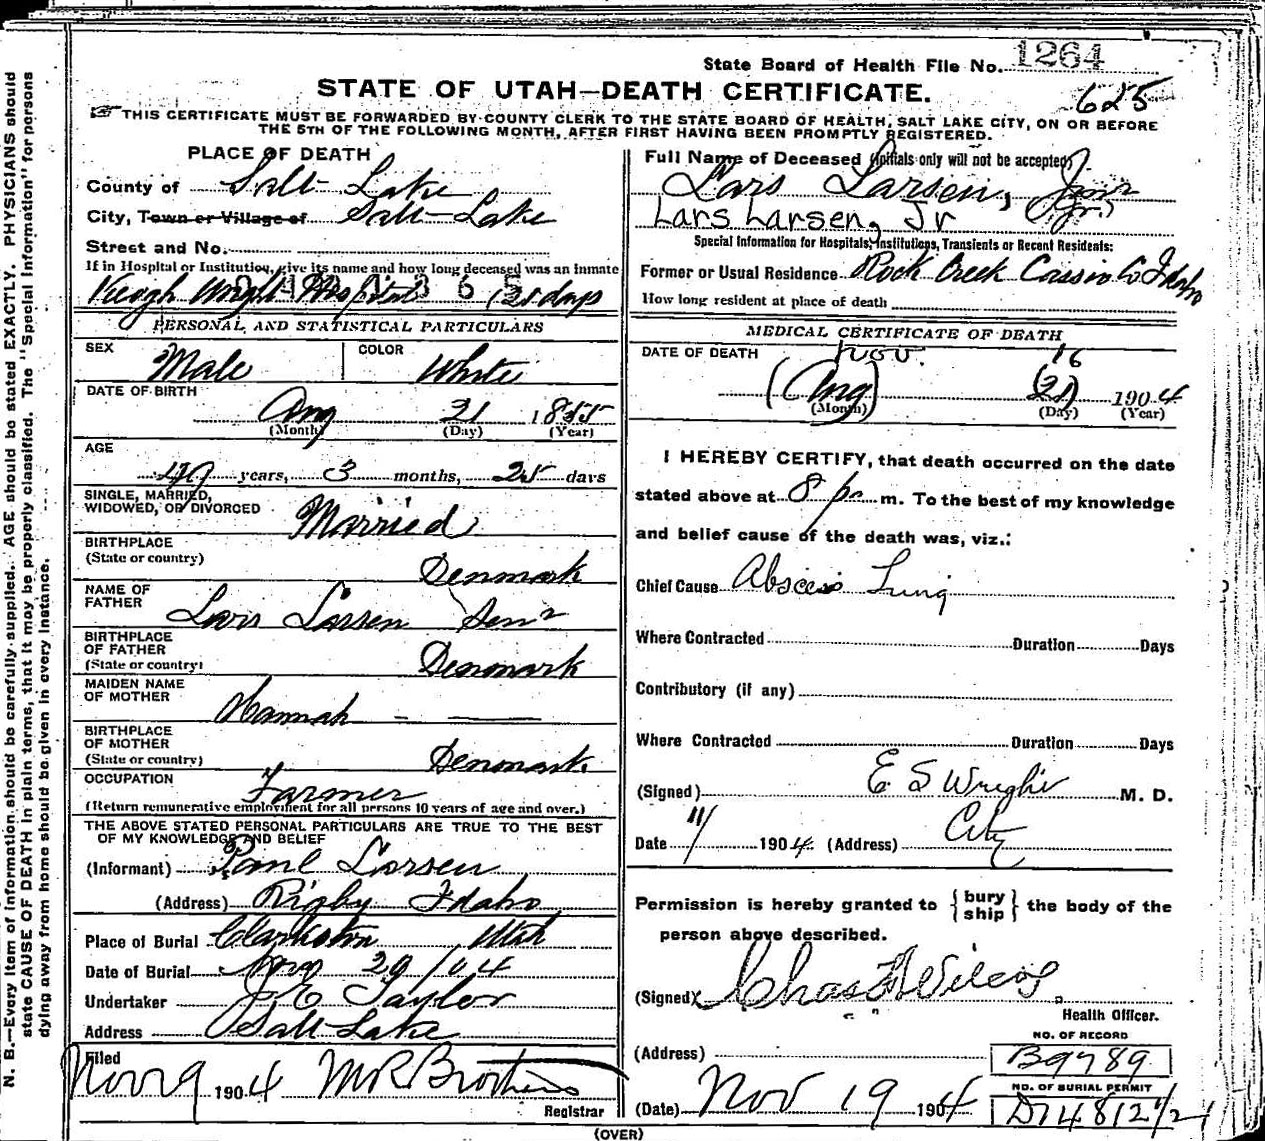 State Board of Health File No. 1264
STATE OF UTAH—DEATH CERTIFICATE.
625
THIS CERTIFICATE MUST BE FORWARDED BY COUNTY CLERK TO THE STATE BOARD OF HEALTH, SALT LAKE CITY, ON OR BEFORE
THE 5TH OF THE FOLLOWING MONTH, AFTER FIRST HAVING BEEN PROMPTLY REGISTERED.
PLACE OF DEATH
County of Salt Lake
City, Town or Village of Salt Lake
Street and No.
If in Hospital or Institution, give its name and how long deceased was an inmate
Keogh Wright Hospital days
PERSONAL AND STATISTICAL PARTICULARS
SEX Male COLOR White
DATE OF BIRTH
Aug 21 1855
(Month) (Day) (Year)
AGE
years, 3 months, 25 days
SINGLE, MARRIED,
WIDOWED, OR DIVORCED Married
BIRTHPLACE
(State or country) Denmark
NAME OF
FATHER Lars Larsen Senr
BIRTHPLACE
OF FATHER
(State or country) Denmark
MAIDEN NAME
OF MOTHER Hannah - —
BIRTHPLACE
OF MOTHER
(State or country) Denmark
OCCUPATION Farmer
(Return remunerative employment for all persons 10 years of age and over.)
THE ABOVE STATED PERSONAL PARTICULARS ARE TRUE TO THE BEST
OF MY KNOWLEDGE AND BELIEF
(Informant) Larsen
(Address) Rigby Idaho
Place of Burial Clarkston Utah
Date of Burial Nov 20/04
Undertaker J. E. Taylor
Address Salt Lake
Filed
Nov 19 1904 M R Brothers
Registrar
Full Name of Deceased (Initials only will not be accepted)
Lars Larsen, Junr
(Jr.)
Lars Larsen, Jr
Special Information for Hospitals, Institutions, Transients or Recent Residents:
Former or Usual Residence Rock Creek Cassia Co Idaho
How long resident at place of death
MEDICAL CERTIFICATE OF DEATH
DATE OF DEATH Nov. 16
(Aug) (21) 1904
(Month) (Day) (Year)
I HEREBY CERTIFY, that death occurred on the date
stated above at 8 p m. To the best of my knowledge
and belief cause of the death was, viz.:
Chief Cause Abscess Lung
Where Contracted Duration Days
Contributory (if any)
Where Contracted Duration Days
(Signed) E S Wright M. D.
Date 11/ 1904. (Address) City
Permission is hereby granted to { bury ship } the body of the
person above described.
(Signed) Chas Wilcox
Health Officer.
(Address)
NO. OF RECORD
B9789
NO. OF BURIAL PERMIT
D14812 1/2
(Date) Nov 19 1904
(OVER)
N. B.—Every item of information should be carefully supplied. AGE should be stated EXACTLY. PHYSICIANS should
state CAUSE OF DEATH in plain terms, that it may be properly classified. The "Special Information" for persons
dying away from home should be given in every instance.